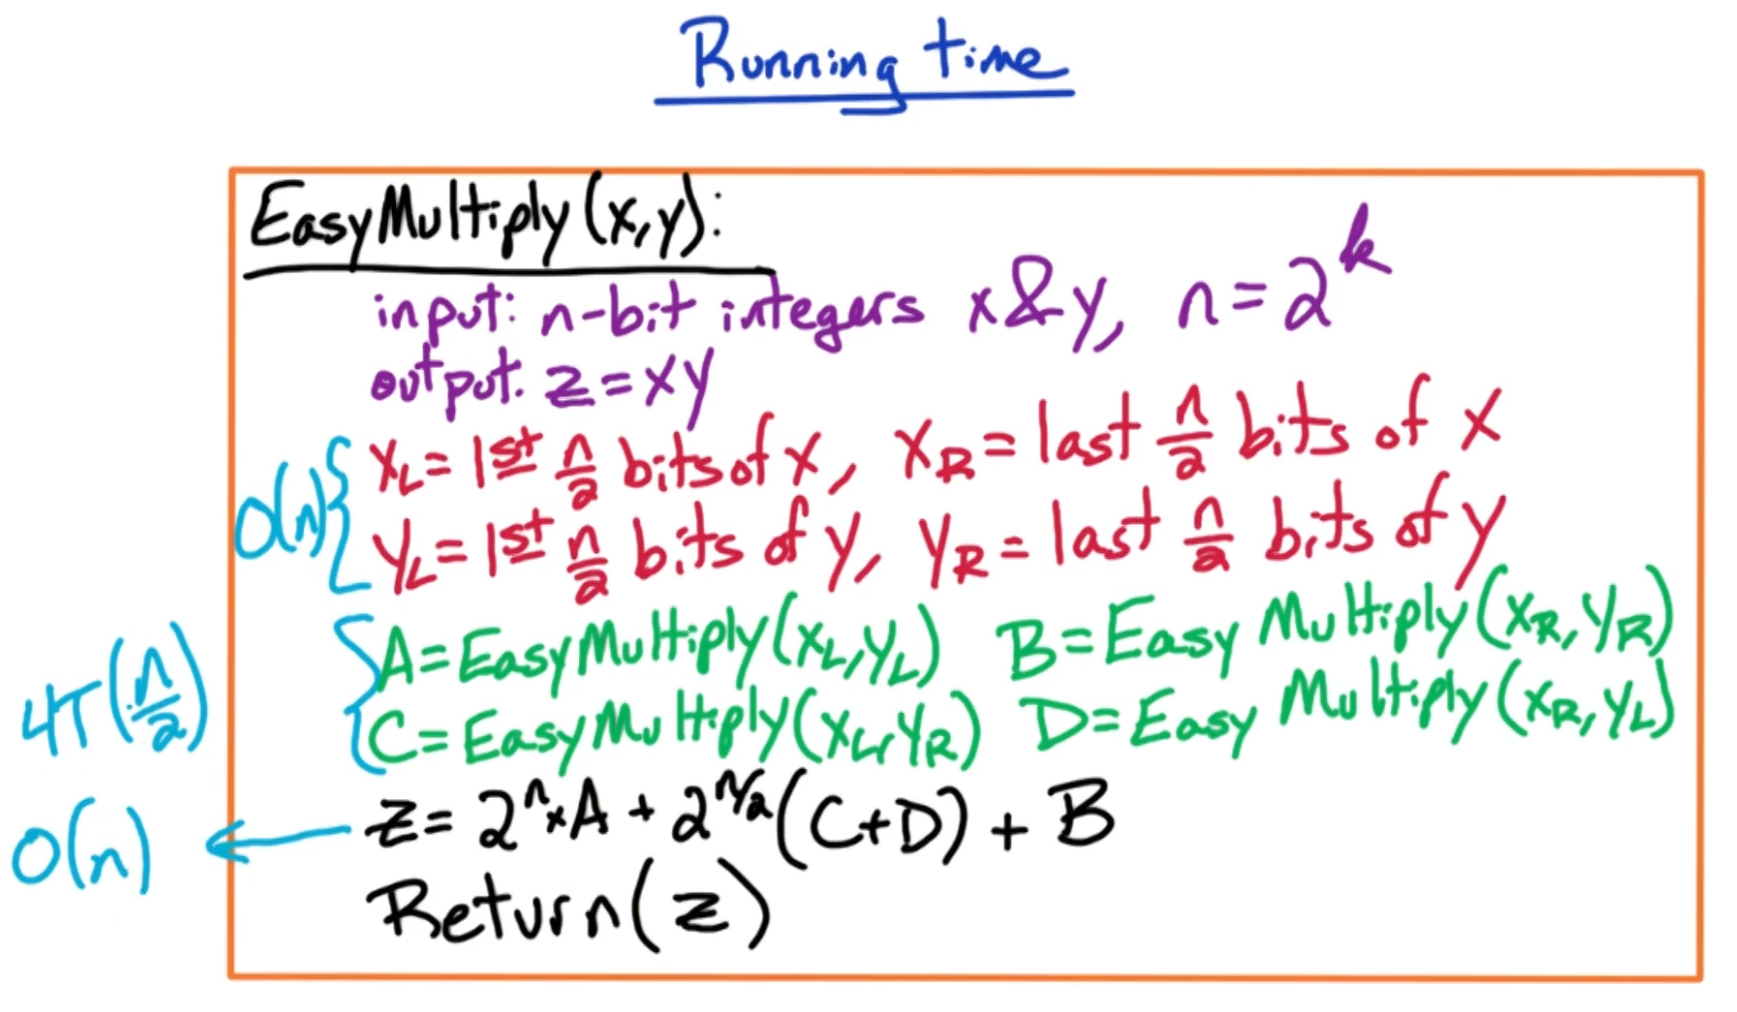 Running time
EasyMultiply(x,y):
input: n-bit integers x&y, n=2^k
output: z=xy
x_L=1st n/2 bits of x, x_R=last n/2 bits of x
O(n)
y_L=1st n/2 bits of y, y_R=last n/2 bits of y
A=EasyMultiply(x_L,y_L) B=EasyMultiply(x_R,y_R)
4T(n/2)
C=EasyMultiply(x_L,y_R) D=EasyMultiply(x_R,y_L)
z=2^n×A+2^{n/2}(C+D)+B
O(n)
Return(z)